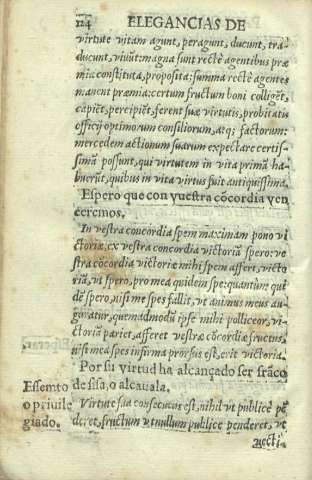 124 ELEGANCIAS DE
virtute vitam agunt, peragunt, ducunt, tra-
ducunt, viuũt: magna sunt rectè agentibus præ
mia constituta, proposita: summa rectè agentes
manent præmia: certum fructum boni colligẽt,
capiẽt, percipiẽt, ferent suæ virtutis, probitatis
officij optimorum consiliorum, atq; factorum:
mercedem actionum suarum expectare certis-
simã possunt, qui virtutem in vita primã ha-
buerũt, quibus in vita virtus fuit antiquissima.
Espero que con vuestra cõcordia ven
ceremos.
In vestra concordia spem maximam pono vi
ctoriæ, ex vestra concordia victoriã spero: ve-
stra cõcordia victoriæ mihi spem affert, victo-
riã, vt spero, pro mea quidem spe: quantum qui
dẽ spero, nisi me spes fallit, vt animus meus au-
guratur, quemadmodũ ipse mihi polliceor, vi-
ctoriã pariet, afferet vestræ cõcordiæ fructus,
nisi mea spes infirma prorsus est, erit victoria.
Por su virtud ha alcançado ser frãco
Essemto de sisa, o alcauala.
o priuile Virtute sua consecutus est, nihil vt publicè pẽ
giado. deret, fructum vt nullum publice penderet, vt
vecti-